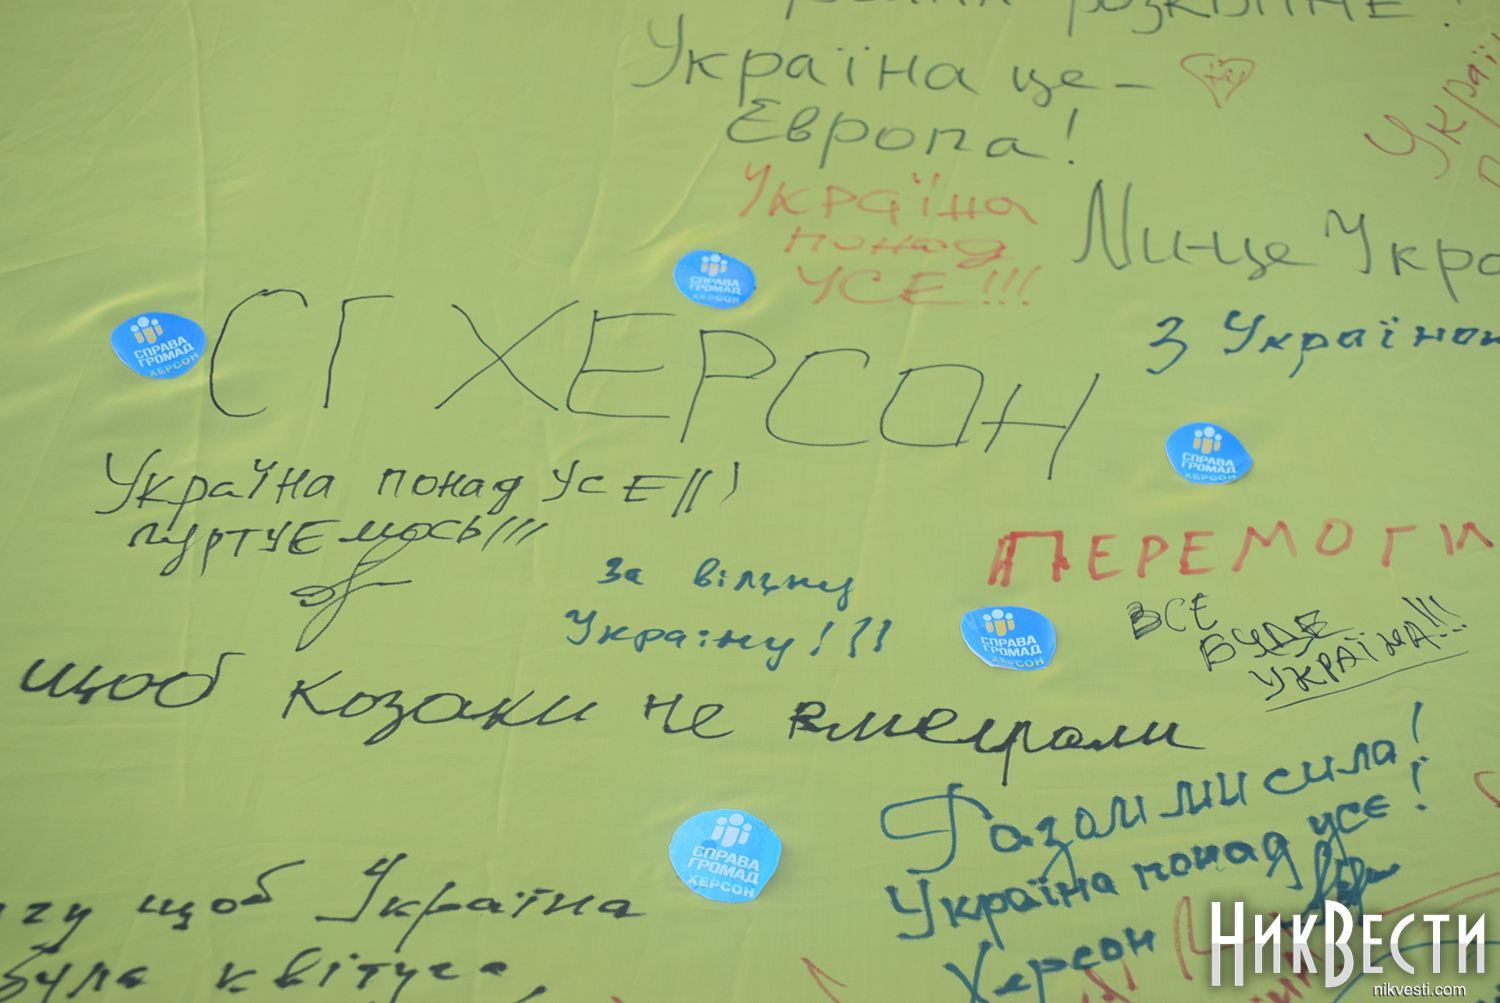 розквітне!
Україна це -
Європа!
Україна
понад
УСЕ!!!
Ми-це Укра
З Україною
СПРАВА
ГРОМАД
ХЕРСОН
СПРАВА
ГРОМАД
ХЕРСОН
СГ ХЕРСОН
СПРАВА
ГРОМАД
ХЕРСОН
Україна понад УСЕ!!!
гуртуЄмось!!!
ПЕРЕМОГИ
за вільну
Україну!!!
СПРАВА
ГРОМАД
ХЕРСОН
ВСЕ
БУДЕ
УКРАЇНА!!!
щоб козаки не вмерали
Разом ми сила!
Україна понад усе!
Херсон
СПРАВА
ГРОМАД
ХЕРСОН
чу щоб Україна
була квітуча
НикВести
nikvesti.com